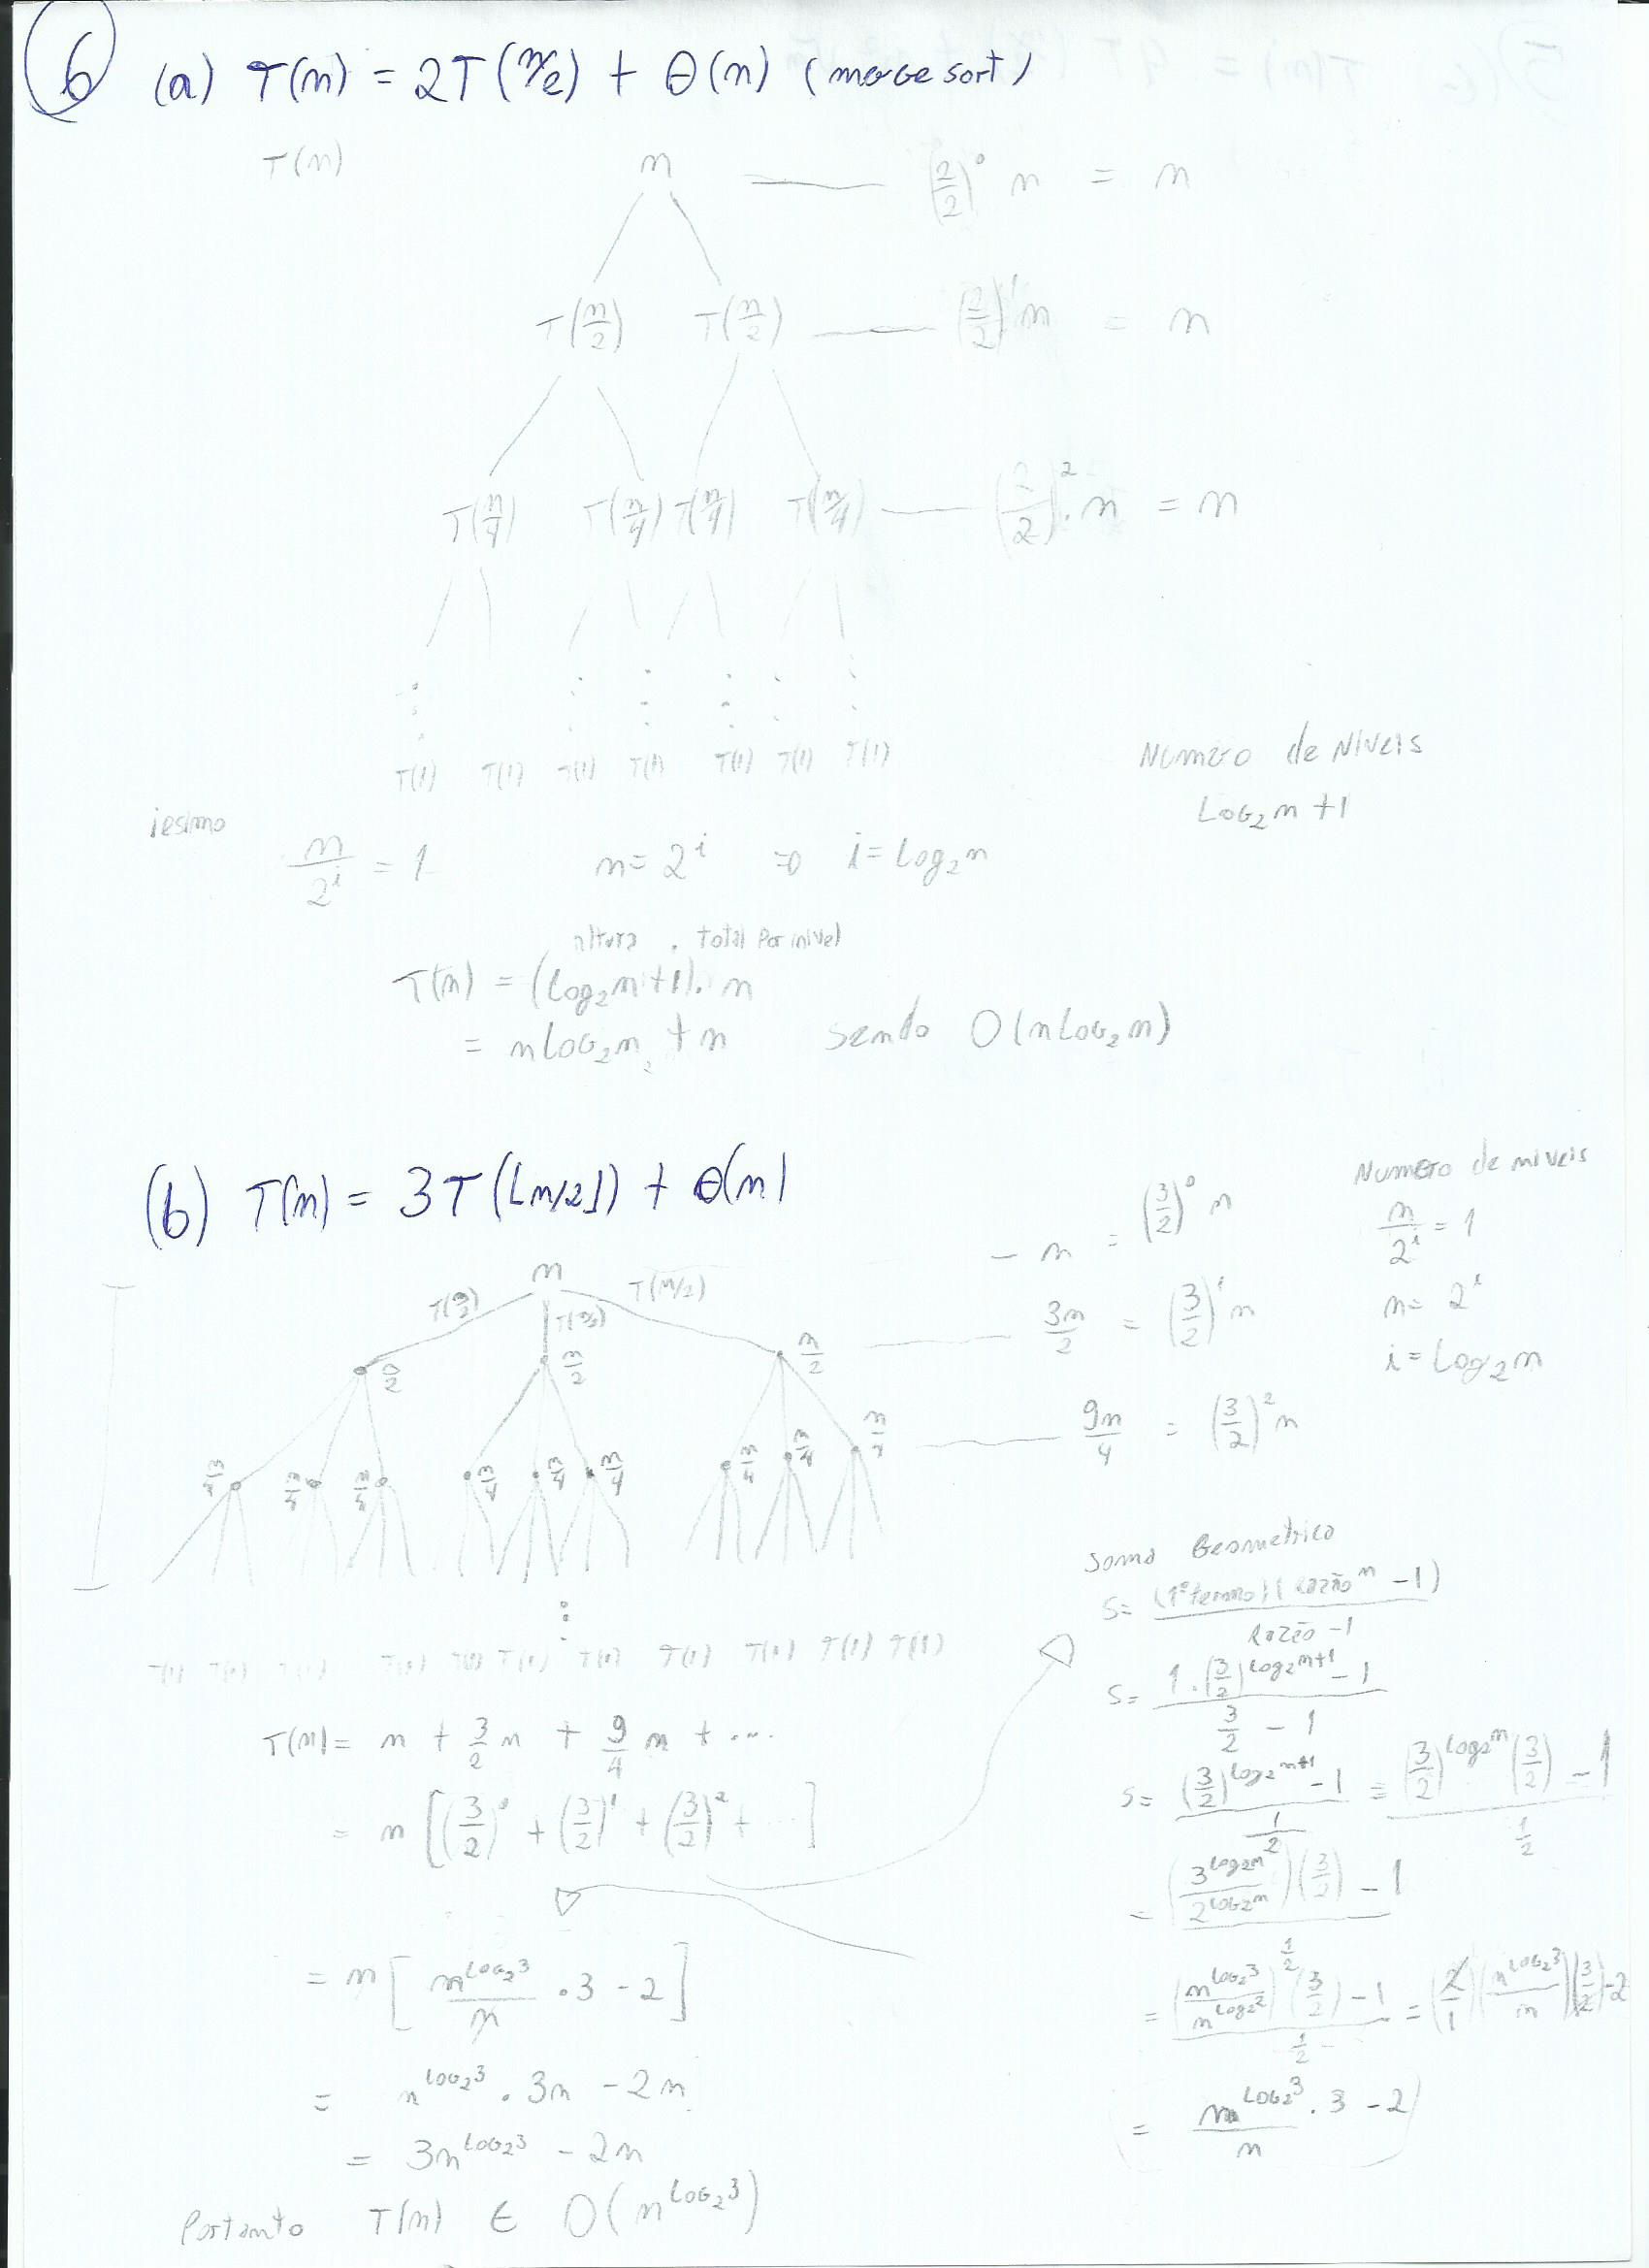 6 (a) T(n) = 2T(n/2) + Θ(n) (merge sort)
T(n) n — (2/2)^0 n = n
T(n/2) T(n/2) — (2/2)^1 n = n
T(n/4) T(n/4) T(n/4) T(n/4) — (2/2)^2 . n = n
T(1) T(1) T(1) T(1) T(1) T(1) T(1)
Numero de Niveis
Log₂n + 1
iesimo
n/2^i = 1 n = 2^i => i = Log₂n
altura . total Por nivel
T(n) = (Log₂n + 1) . n
= nLog₂n + n sendo O(nLog₂n)
(b) T(n) = 3T(⌊n/2⌋) + Θ(n)
n
T(n/2) T(n/2) T(n/2)
n/2 n/2 n/2
n/4 n/4 n/4 n/4 n/4 n/4 n/4 n/4 n/2
– n = (3/2)^0 n
3n/2 = (3/2)^1 n
9n/4 = (3/2)^2 n
Numero de niveis
n/2^i = 1
n = 2^i
i = Log₂n
T(1) T(1) T(1) T(1) T(1) T(1) T(1) T(1) T(1) T(1) T(1)
T(n) = n + 3/2 n + 9/4 n + ...
= n [(3/2)^0 + (3/2)^1 + (3/2)^2 + ...]
= n [n^Log₂3 / n . 3 - 2]
= n^Log₂3 . 3n - 2n
= 3n^Log₂3 - 2n
Portanto T(n) ∈ O(n^Log₂3)
Soma Geometrico
S = (1º termo)(Razão^n - 1) / Razão - 1
S = 1 . (3/2)^Log₂n+1 - 1 / 3/2 - 1
S = (3/2)^Log₂n+1 - 1 / 1/2 = (3/2)^Log₂n (3/2) - 1 / 1/2
= (3^Log₂n / 2^Log₂n)(3/2) - 1 / 1/2
= (n^Log₂3 / n^Log₂2)(3/2) - 1 / 1/2 = (2/1)(n^Log₂3 / n)(3/2) - 2
= n^Log₂3 / n . 3 - 2